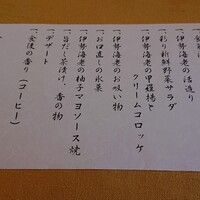 一、伊勢海老の活造り
一、彩り新鮮野菜サラダ
一、伊勢海老の甲羅揚と
クリームコロッケ
一、伊勢海老のお吸い物
一、お口直しの氷菓
一、伊勢海老の柚子マヨソース焼
一、旨だし茶漬け、香の物
一、デザート
一、食後の香り(コーヒー)